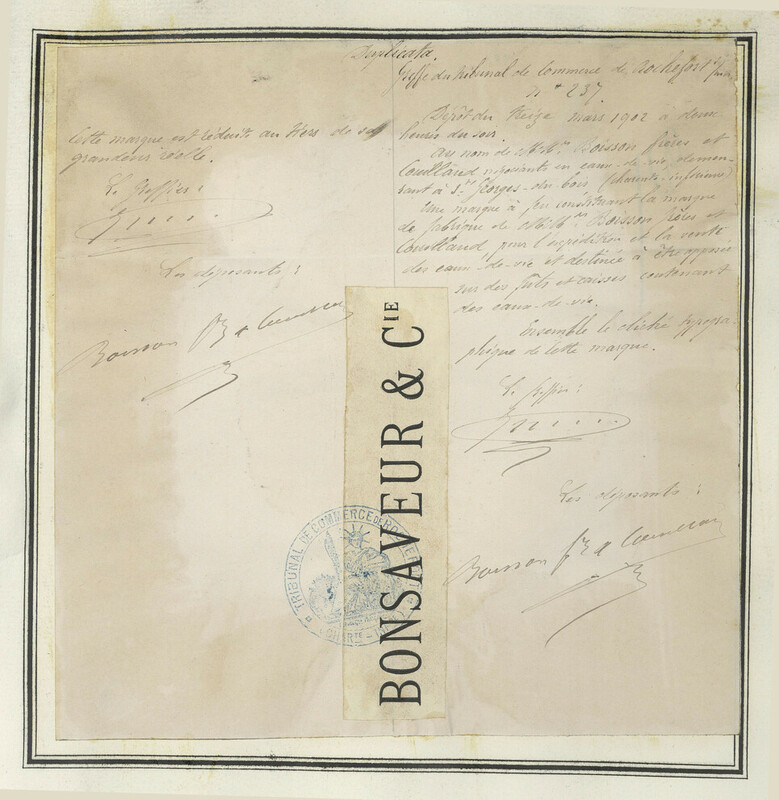 Duplicata.
Cette marque est réduite au tiers de sa
grandeur réelle.
Le Greffier :
Les déposants :
Greffe du tribunal de Commerce de Rochefort s/
N° 237.
Dépôt du treize mars 1902 à deux
heures du soir
Au nom de M.Mrs Boisson frères et
négociants en eaux-de-vie, demeu-
rant à St Georges-du-bois, (charente-inférieure)
Une marque à feu constituant la marque
de fabrique de M.Mrs Boisson frères et
pour l'expédition et la vente
des eaux-de-vie et destinée à être apposée
sur des fûts et caisses contenant
des eaux-de-vie.
Ensemble le cliché typogra-
phique de cette marque.
Le Greffier :
Les déposants :
BONSAVEUR & CIE
TRIBUNAL DE COMMERCE DE ROCHEFORT